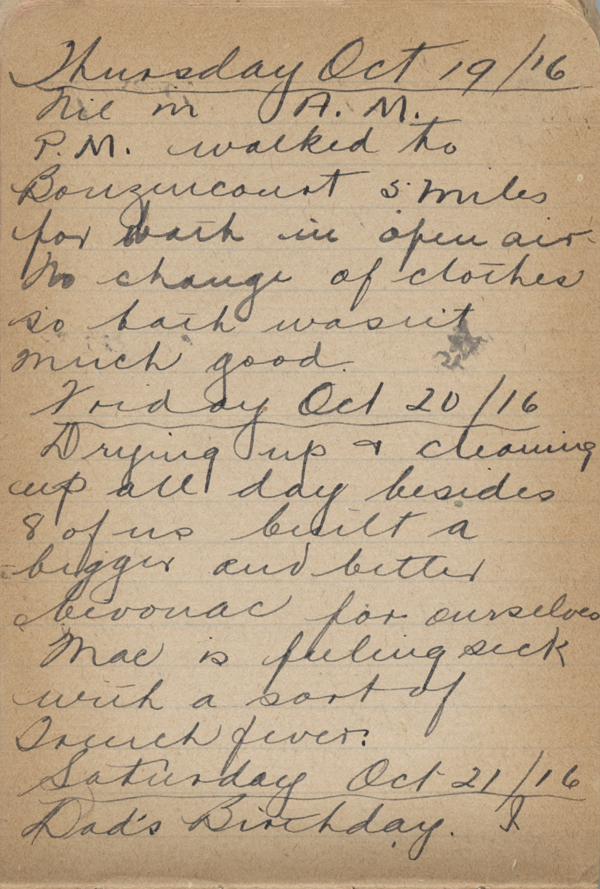 Thursday Oct 19/16
Nil in A.M.
P.M. walked to
Bouzincourt 5 miles
for bath in open air
No change of clothes
so bath wasn't
much good.
Friday Oct 20/16
Drying up & cleaning
up all day besides
8 of us built a
bigger and better
bivouac for ourselves
Mac is feeling sick
with a sort of
Trench fever.
Saturday Oct 21/16
Dad's Birthday. I